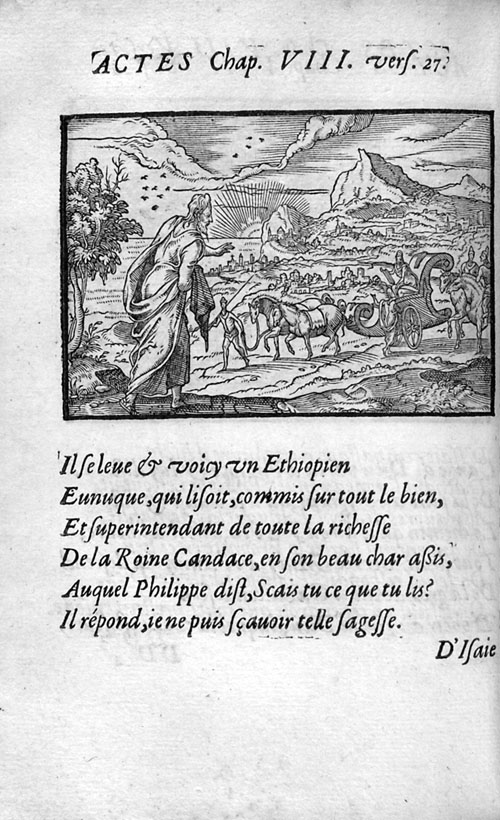 ACTES Chap. VIII. vers. 27.
Il se leue & voicy vn Ethiopien
Eunuque, qui lisoit, commis sur tout le bien,
Et superintendant de toute la richesse
De la Roine Candace, en son beau char assis,
Auquel Philippe dist, Scais tu ce que tu lis?
Il répond, ie ne puis sçauoir telle sagesse.
D'Isaie